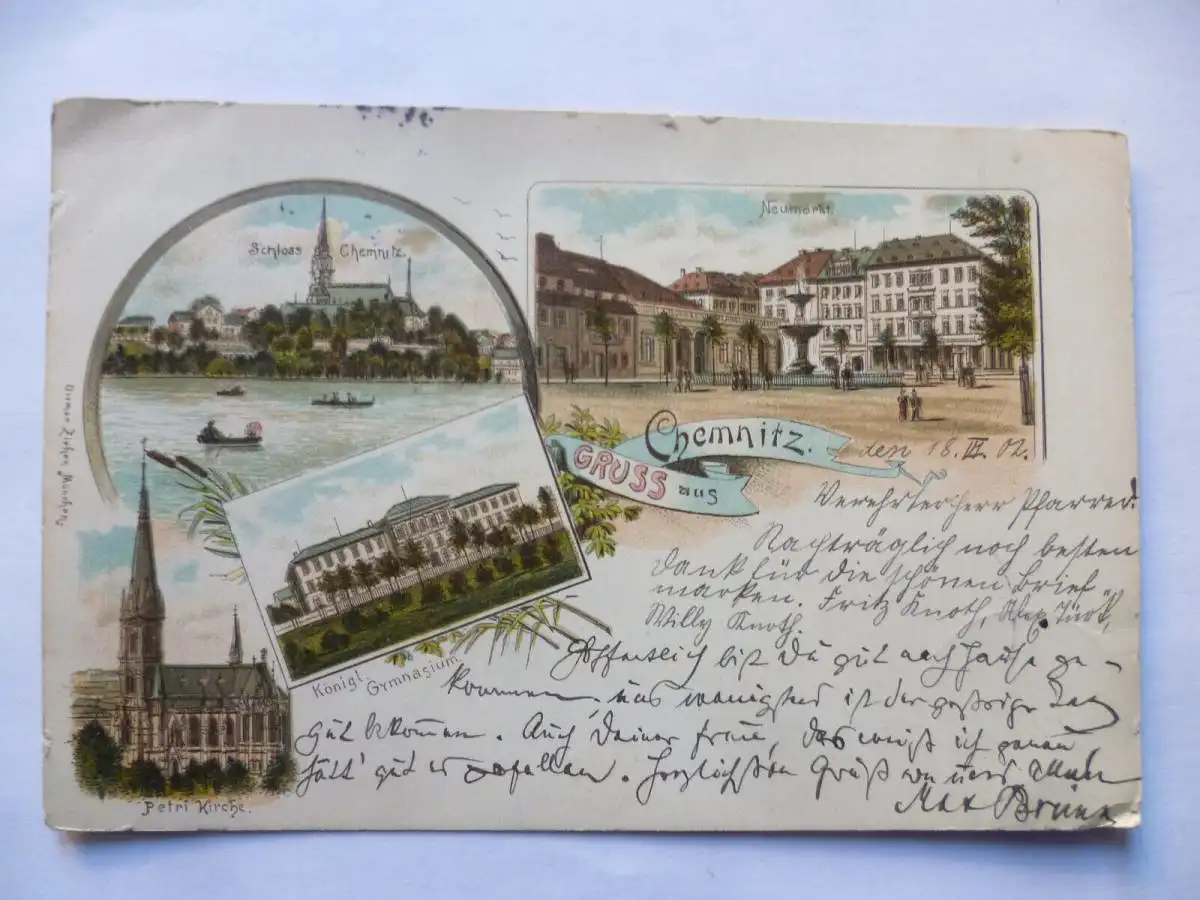 Schloss Chemnitz.
Neumarkt.
GRUSS aus Chemnitz.
Königl. Gymnasium.
Petri Kirche.
Ottmar Zieher, München
den 18. VI. 02.
Verehrter Herr Pfarrer!
Nachträglich noch besten
Dank für die schönen Brief-
marken. Fritz Knoth, Alex Türk,
Willy Knoth.
Hoffentlich bist Du gut nach Hause ge-
kommen, uns wenigstens ist der gestrige Tag
gut bekommen. Auch Deiner Frau, das weiß ich genau
hätt' gut es gefallen. Herzlichsten Gruß von uns allen
Max